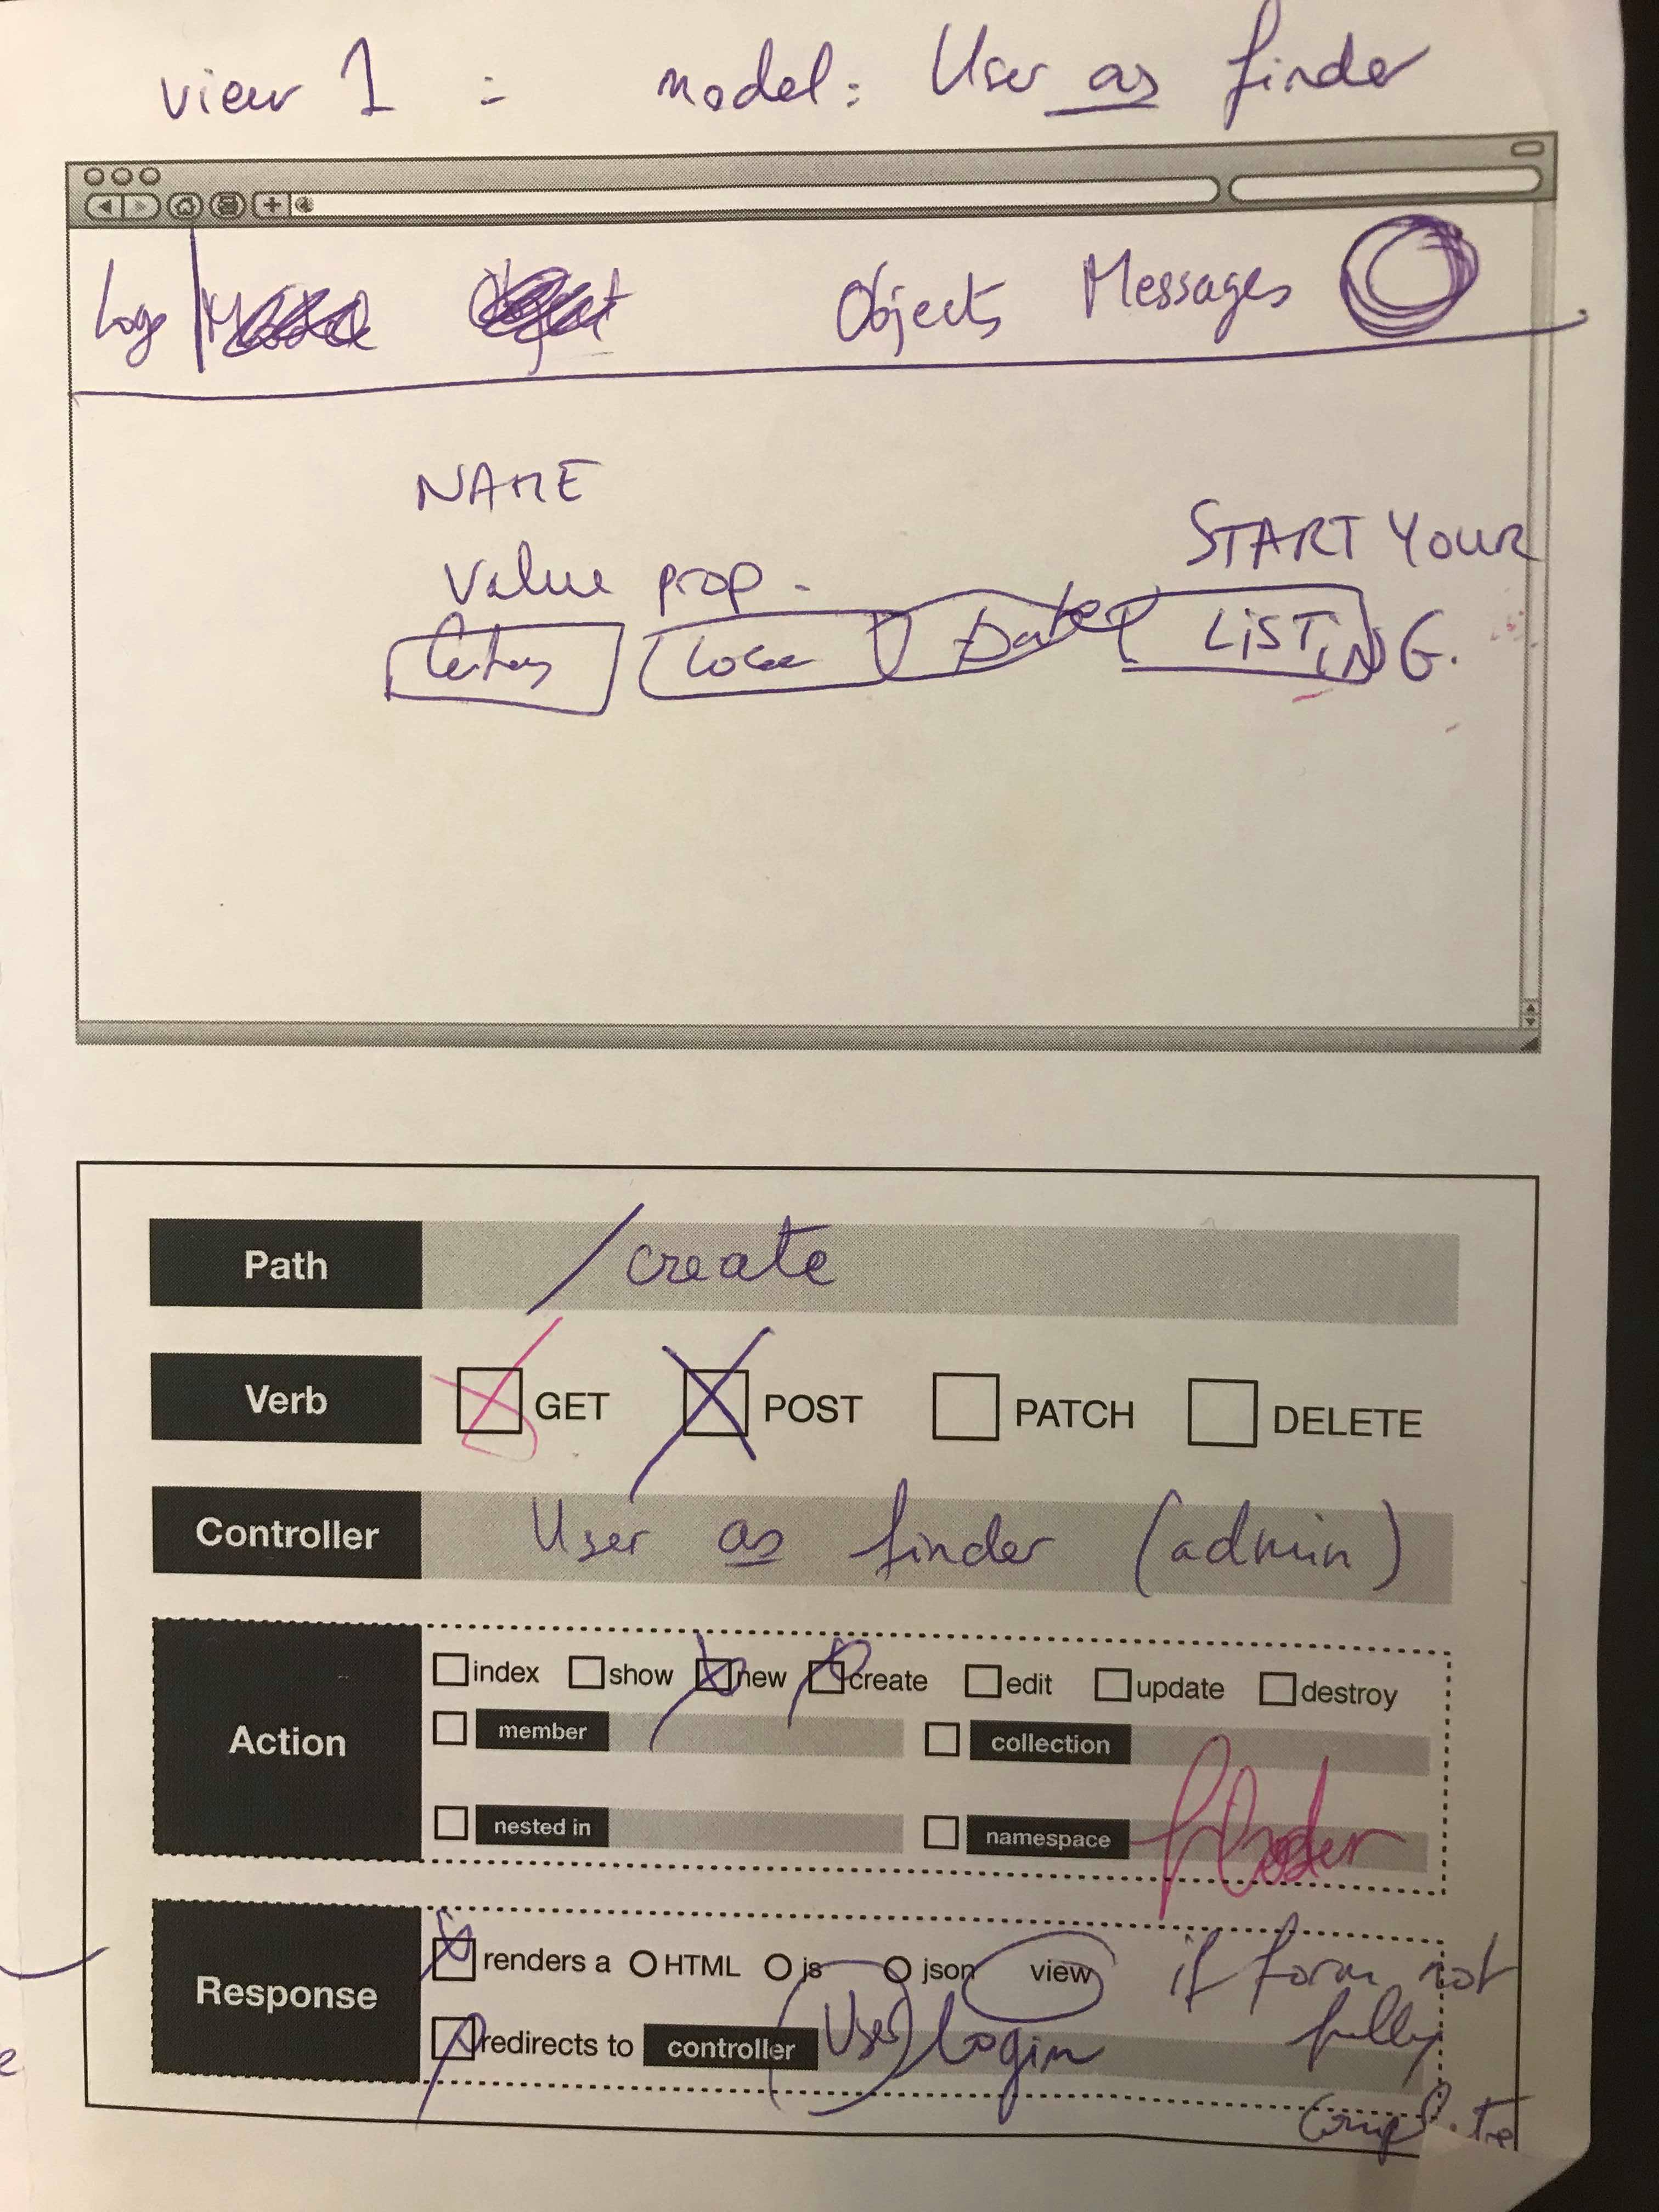 view 1 : model: User as finder
Logo Objects Messages
NAME
Value prop.
START YOUR
LISTING.
Date
Path /create
Verb GET POST PATCH DELETE
Controller User as finder (admin)
Action
index show new create edit update destroy
member collection
nested in namespace
Response
renders a HTML js json view if form not
redirects to controller (User) login fully
complete